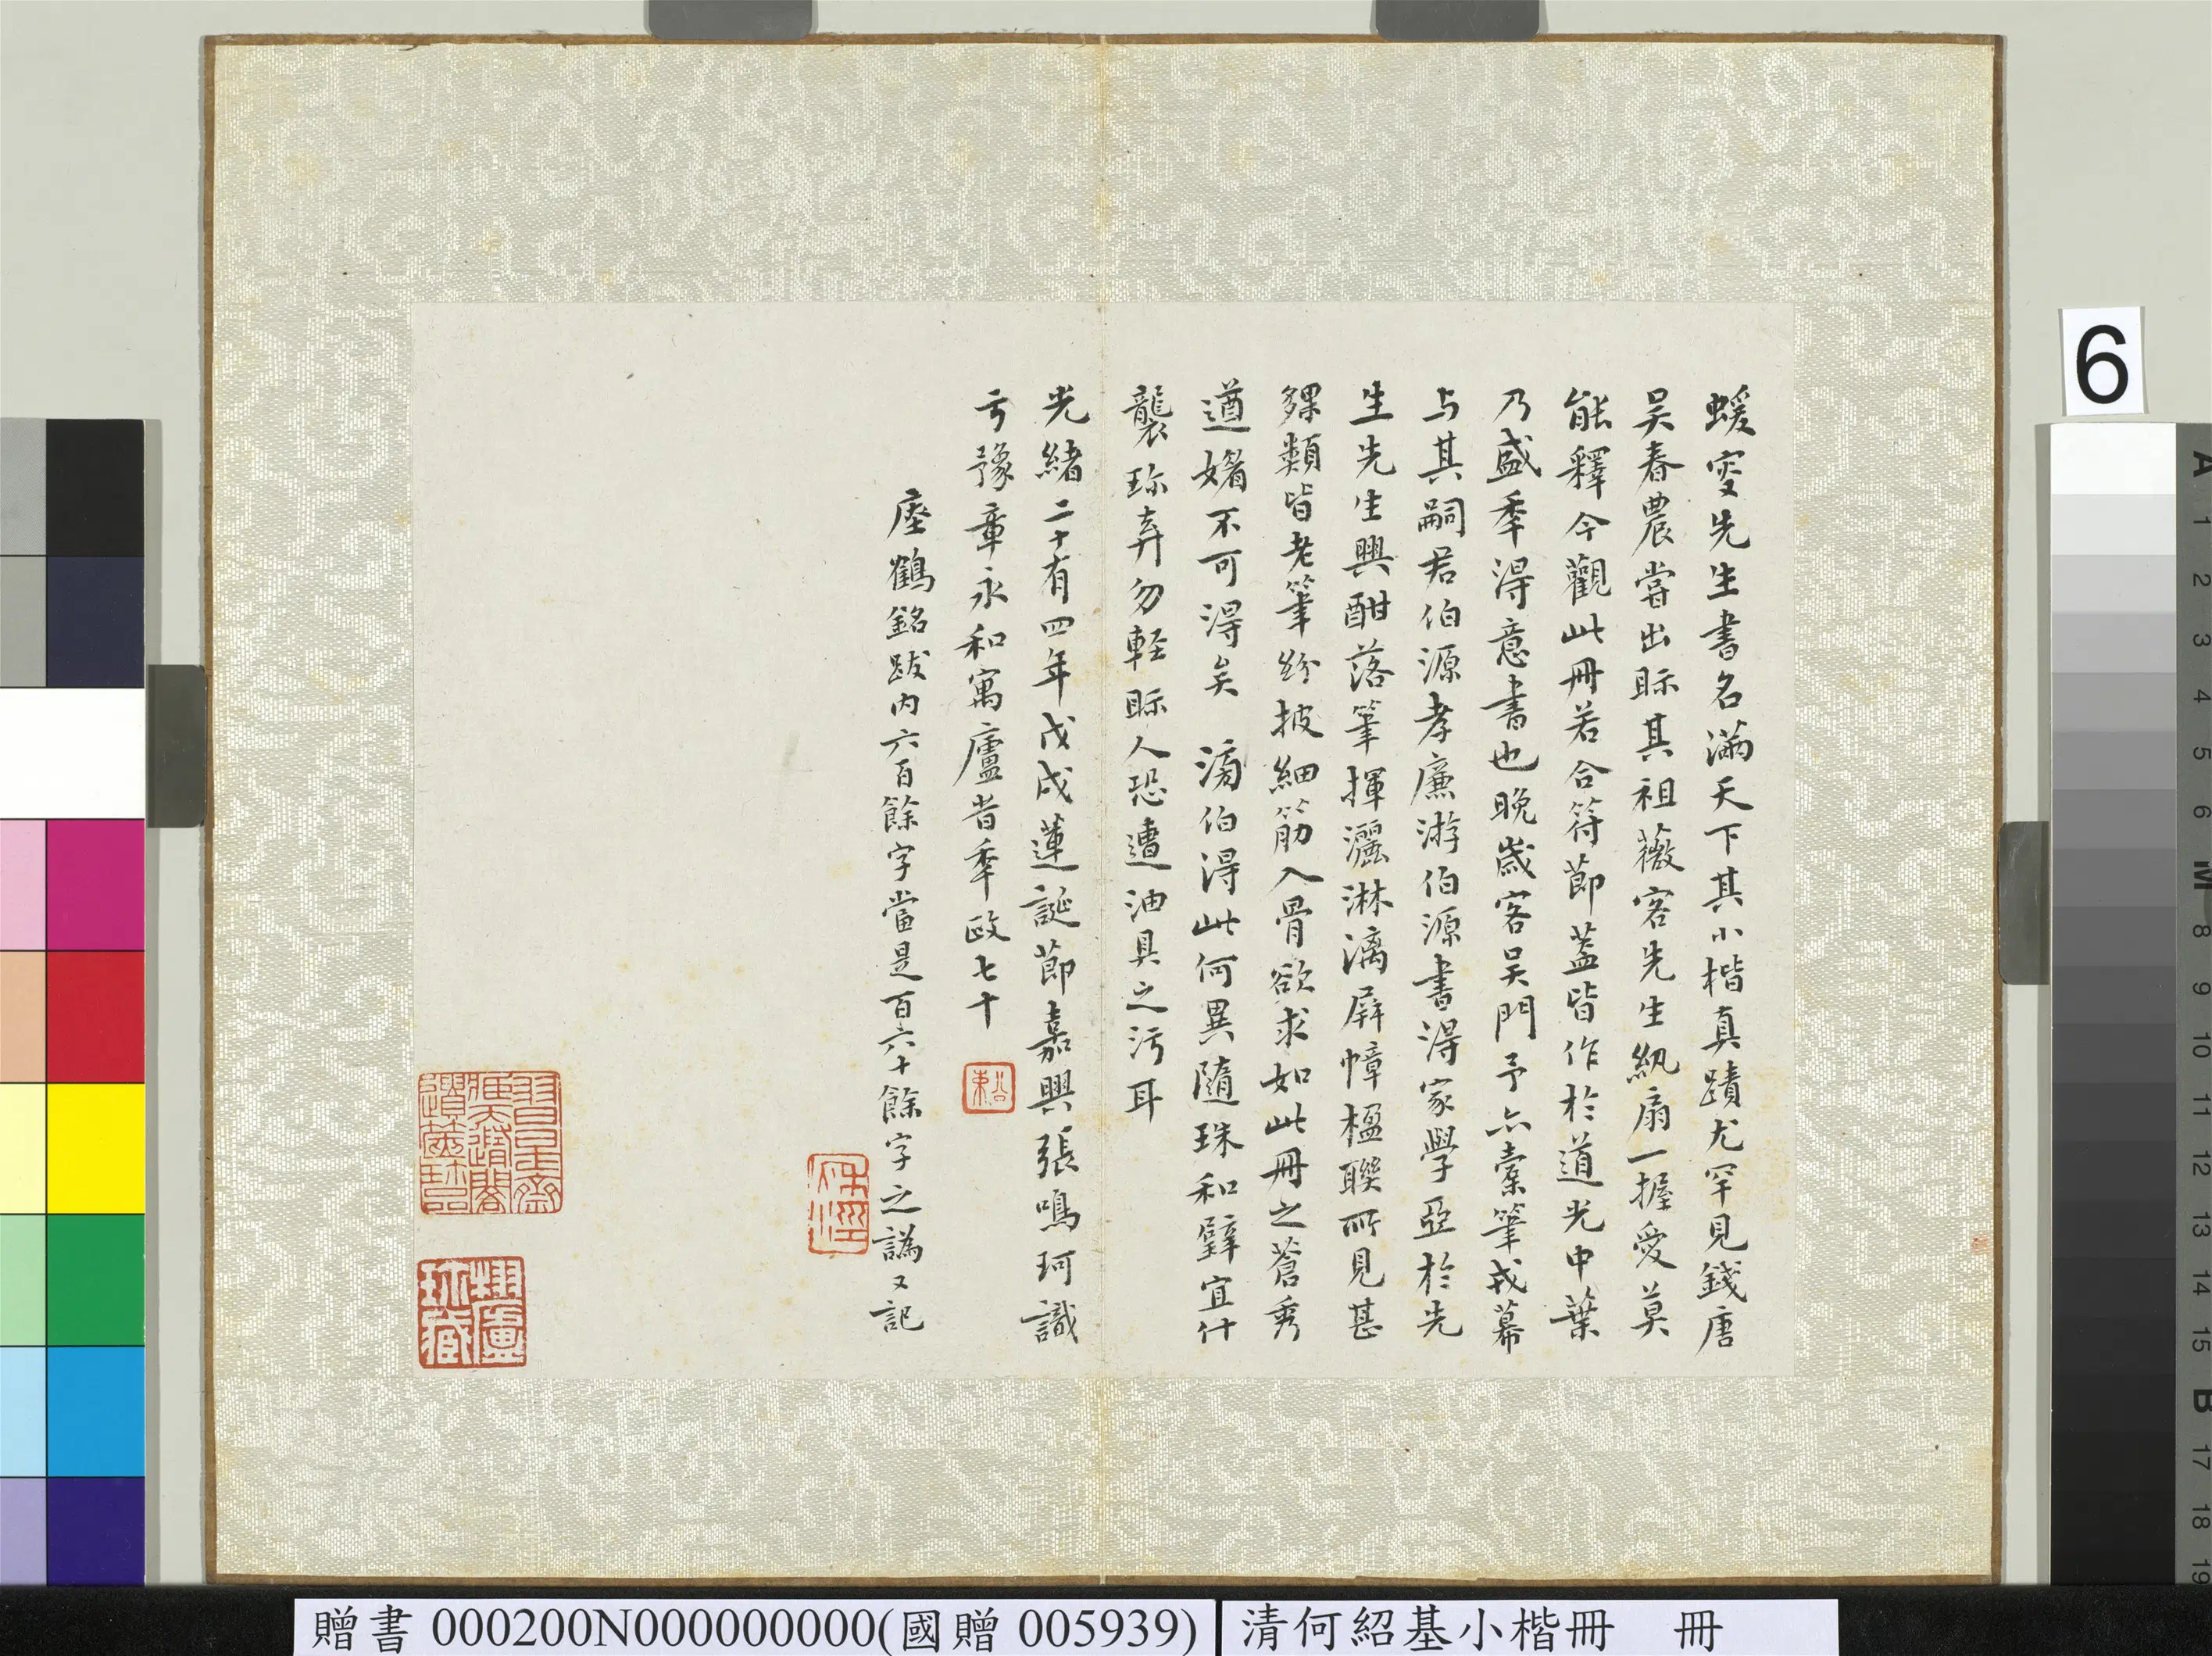 蝯叟先生書名滿天下其小楷真蹟尤罕見錢唐
吳春農嘗出眎其祖薇客先生紈扇一握愛莫
能釋今觀此冊若合符節蓋皆作於道光中葉
乃盛季得意書也晚歲客吳門予亦橐筆戎幕
与其嗣君伯源孝廉游伯源書得家學亞於先
生先生興酣落筆揮灑淋漓屏幛楹聯所見甚
夥類皆老筆紛披細筋入骨欲求如此冊之蒼秀
遒媚不可得矣 滳伯得此何異隨珠和璧宜什
襲珎弆勿輕眎人恐遭油具之污耳
光緒二十有四年戊戌蓮誕節嘉興張鳴珂識
于豫章永和寓廬昔季政七十
瘞鶴銘跋內六百餘字當是百六十餘字之譌又記
栩廬
珎藏
6
贈書 000200N000000000(國贈 005939)
清何紹基小楷冊 冊
A 1 2 3 4 5 6 M 8 9 10 11 12 13 14 15 B 17 18 19